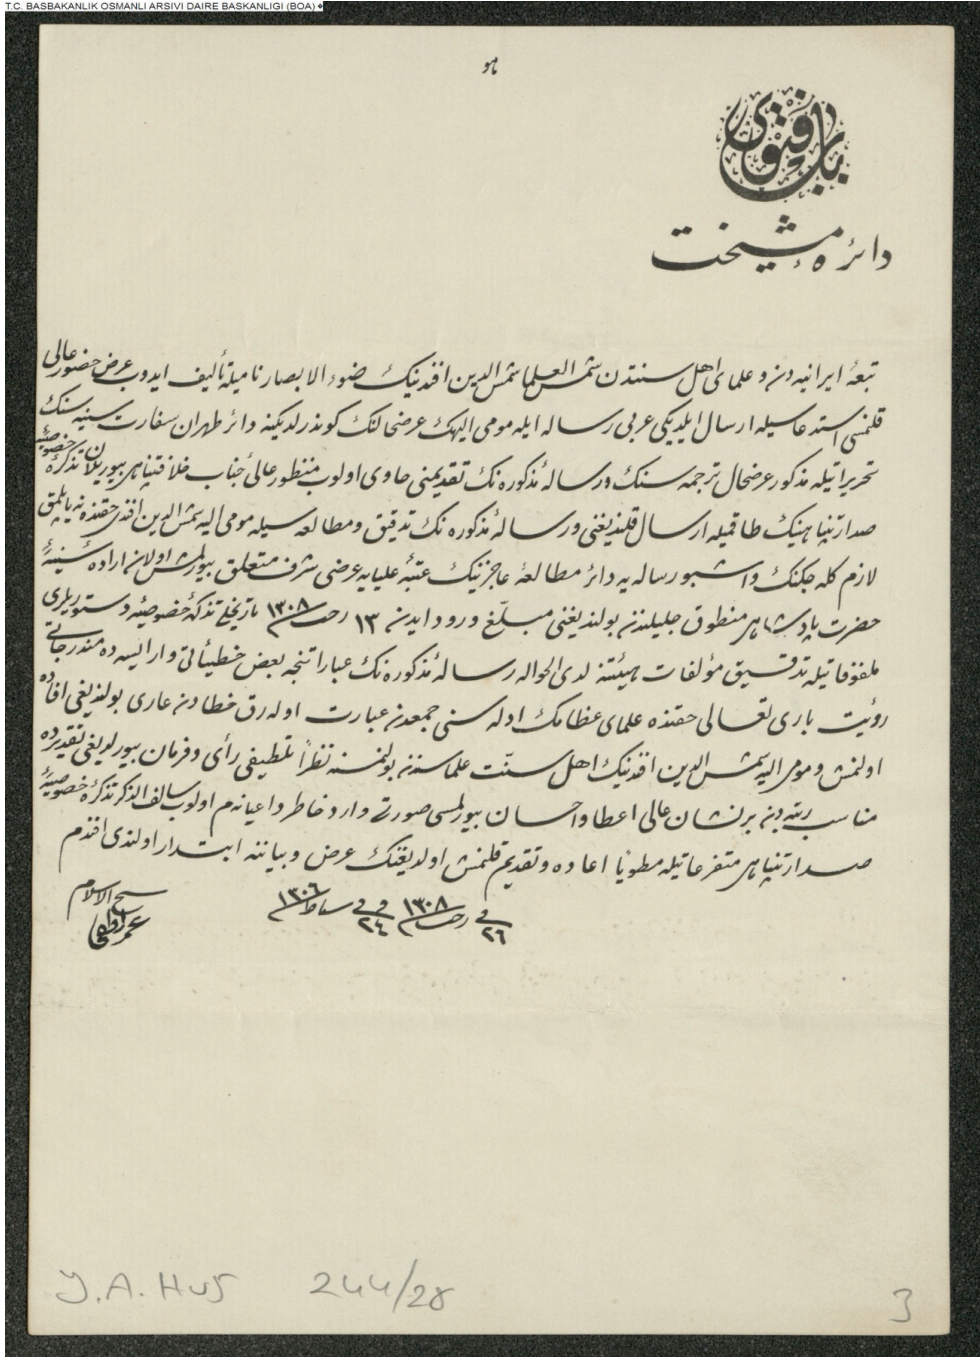 T.C. BASBAKANLIK OSMANLI ARSIVI DAIRE BASKANLIGI (BOA)
هو
باب فتوى
دائرهٔ مشيخت
تبعهٔ ايرانيه‌دن و علماى اهل سنتدن شمس العلما شمس الدين افندينك ضوء الابصار ناميله تأليف ايدوب عرض حضور عالى
قلنمسى استدعاسيله ارسال ايلديكى عربى رساله ايله مومى اليهك عرضحالنك كوندرلديكنه دائر طهران سفارت سنيه سنك
تحريراتيله مذكور عرضحال ترجمه سنك و رسالهٔ مذكوره نك تقديمنى حاوى اولوب منظور عالئ جناب خلافتپناهى بيوريلان تذكرهٔ خصوصيهٔ
صدارتپناهينك طاقميله ارسال قلنديغنى و رسالهٔ مذكوره نك تدقيق و مطالعه سيله مومى اليه شمس الدين افندى حقنده نه ياپلمق
لازم كله جكنك و اشبو رساله يه دائر مطالعهٔ عاجزينك عتبهٔ عليايه عرضى شرفمتعلق بيورلمش اولان ارادهٔ سنيهٔ
حضرت پادشاهى منطوق جليلندن بولنديغنى مبلّغ ورود ايدن ١٣ رجب ١٣٠٨ تاريخلى تذكرهٔ خصوصيهٔ دستوريلرى
ملفوفاتيله تدقيق مؤلفات هيئتنه لدى الحواله رسالهٔ مذكوره نك عباراتنجه بعض خطيئاتى وار ايسه ده مندرجاتى
رؤيت بارى تعالى حقنده علماى عظامك ادله سنى جمعدن عبارت اوله رق خطادن عارى بولنديغى افاده
اولنمش و مومى اليه شمس الدين افندينك اهل سنّت علماسندن بولنمسنه نظراً تلطيفى رأى و فرمان بيورلديغى تقديرده
مناسب رتبه دن بر نشان عالى اعطا و احسان بيورلمسى صورتى وارد خاطر داعيانه م اولوب سالف الذكر تذكرهٔ خصوصيهٔ
صدارتپناهى متفرعاتيله مطوياً اعاده و تقديم قلنمش اولديغنك عرض و بياننه ابتدار اولندى افندم
فى ٢٦ رجب ١٣٠٨ و فى ٢٤ شباط ١٣٠٦
شيخ الاسلام
عمر لطفى
Y.A.HUS 244/28
3